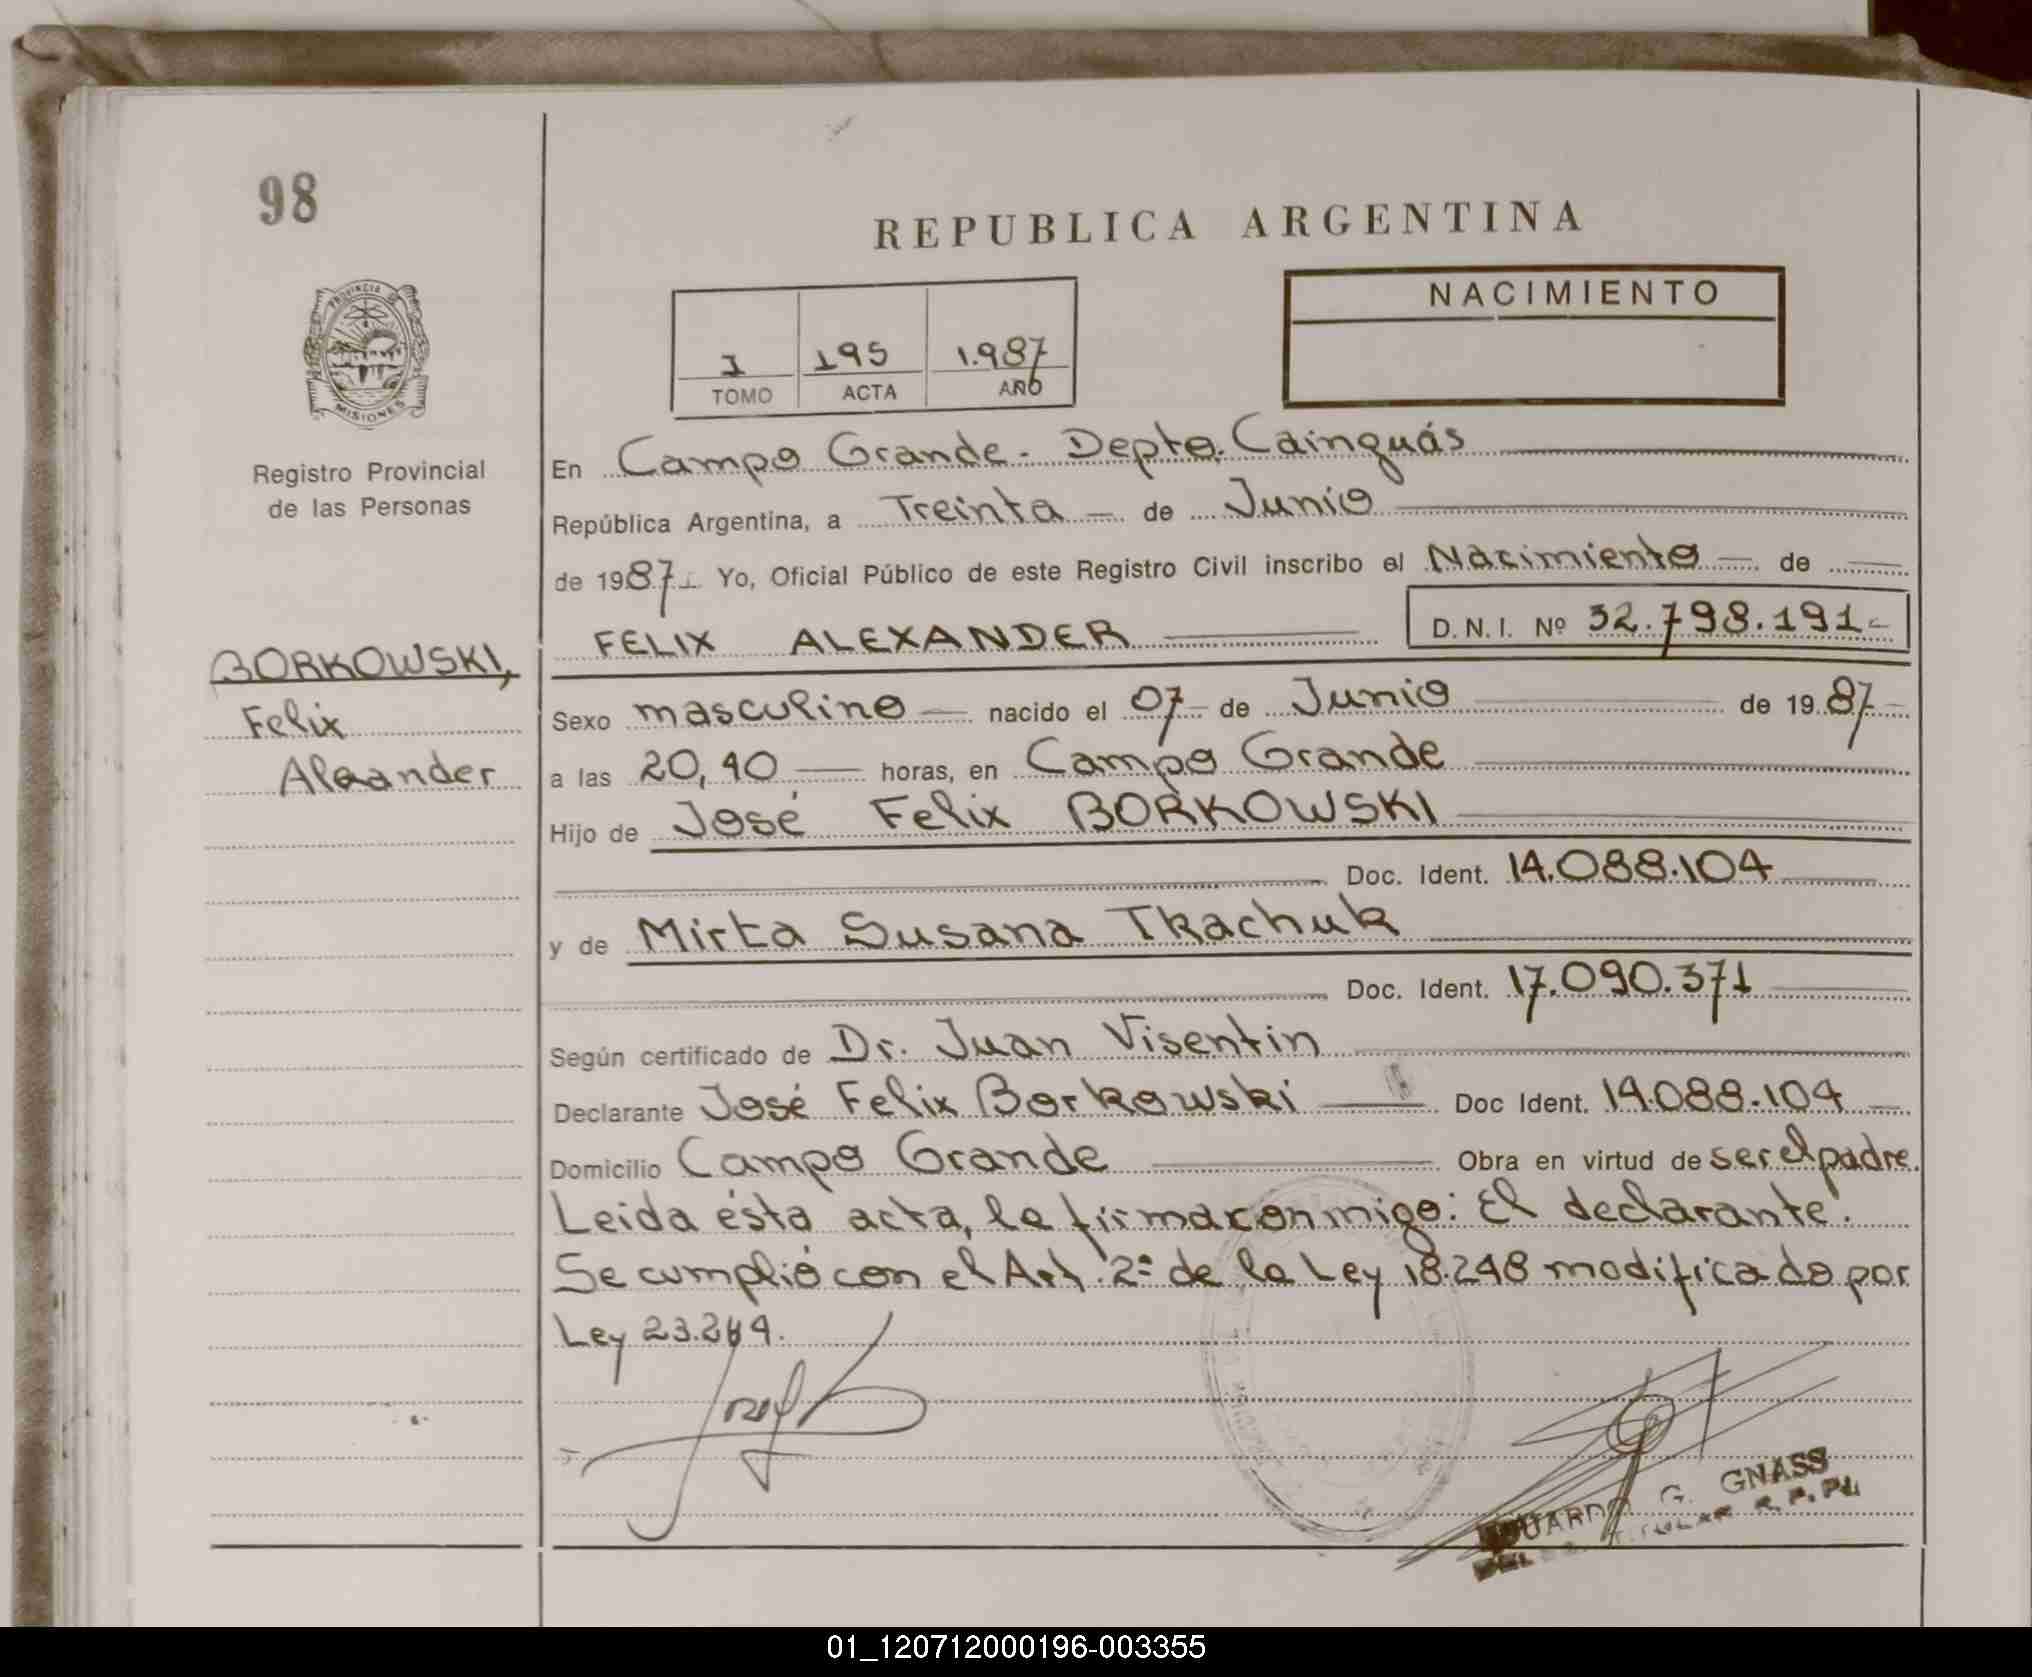 98
REPUBLICA ARGENTINA
PROVINCIA DE
MISIONES
Registro Provincial
de las Personas
1 195 1.987
TOMO ACTA AÑO
NACIMIENTO
En Campo Grande - Depto. Cainguás
República Argentina, a Treinta — de Junio
de 1987 - Yo, Oficial Público de este Registro Civil inscribo el Nacimiento — de
FELIX ALEXANDER D.N.I. Nº 32.798.191-
BORKOWSKI,
Felix
Alexander
Sexo masculino — nacido el 07 - de Junio de 1987 -
a las 20,40 — horas, en Campo Grande
Hijo de José Felix BORKOWSKI
Doc. Ident. 14.088.104
y de Mirta Susana Tkachuk
Doc. Ident. 17.090.371
Según certificado de Dr. Juan Visentin
Declarante José Felix Borkowski — Doc Ident. 14.088.104 —
Domicilio Campo Grande — Obra en virtud de ser el padre.
Leida ésta acta, la firma conmigo: El declarante.
Se cumplió con el Art. 2º de la Ley 18.248 modificado por
Ley 23.264.
EDUARDO G. GNASS
TITULAR R. P. P.
01_120712000196-003355